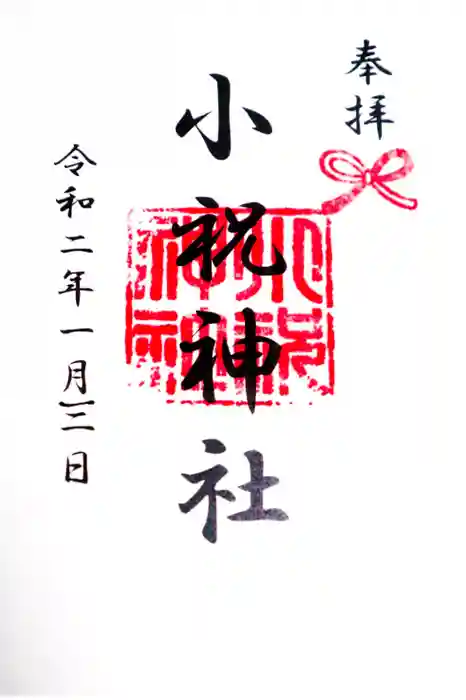 奉拝
小祝神社
小祝神社
令和二年一月三日